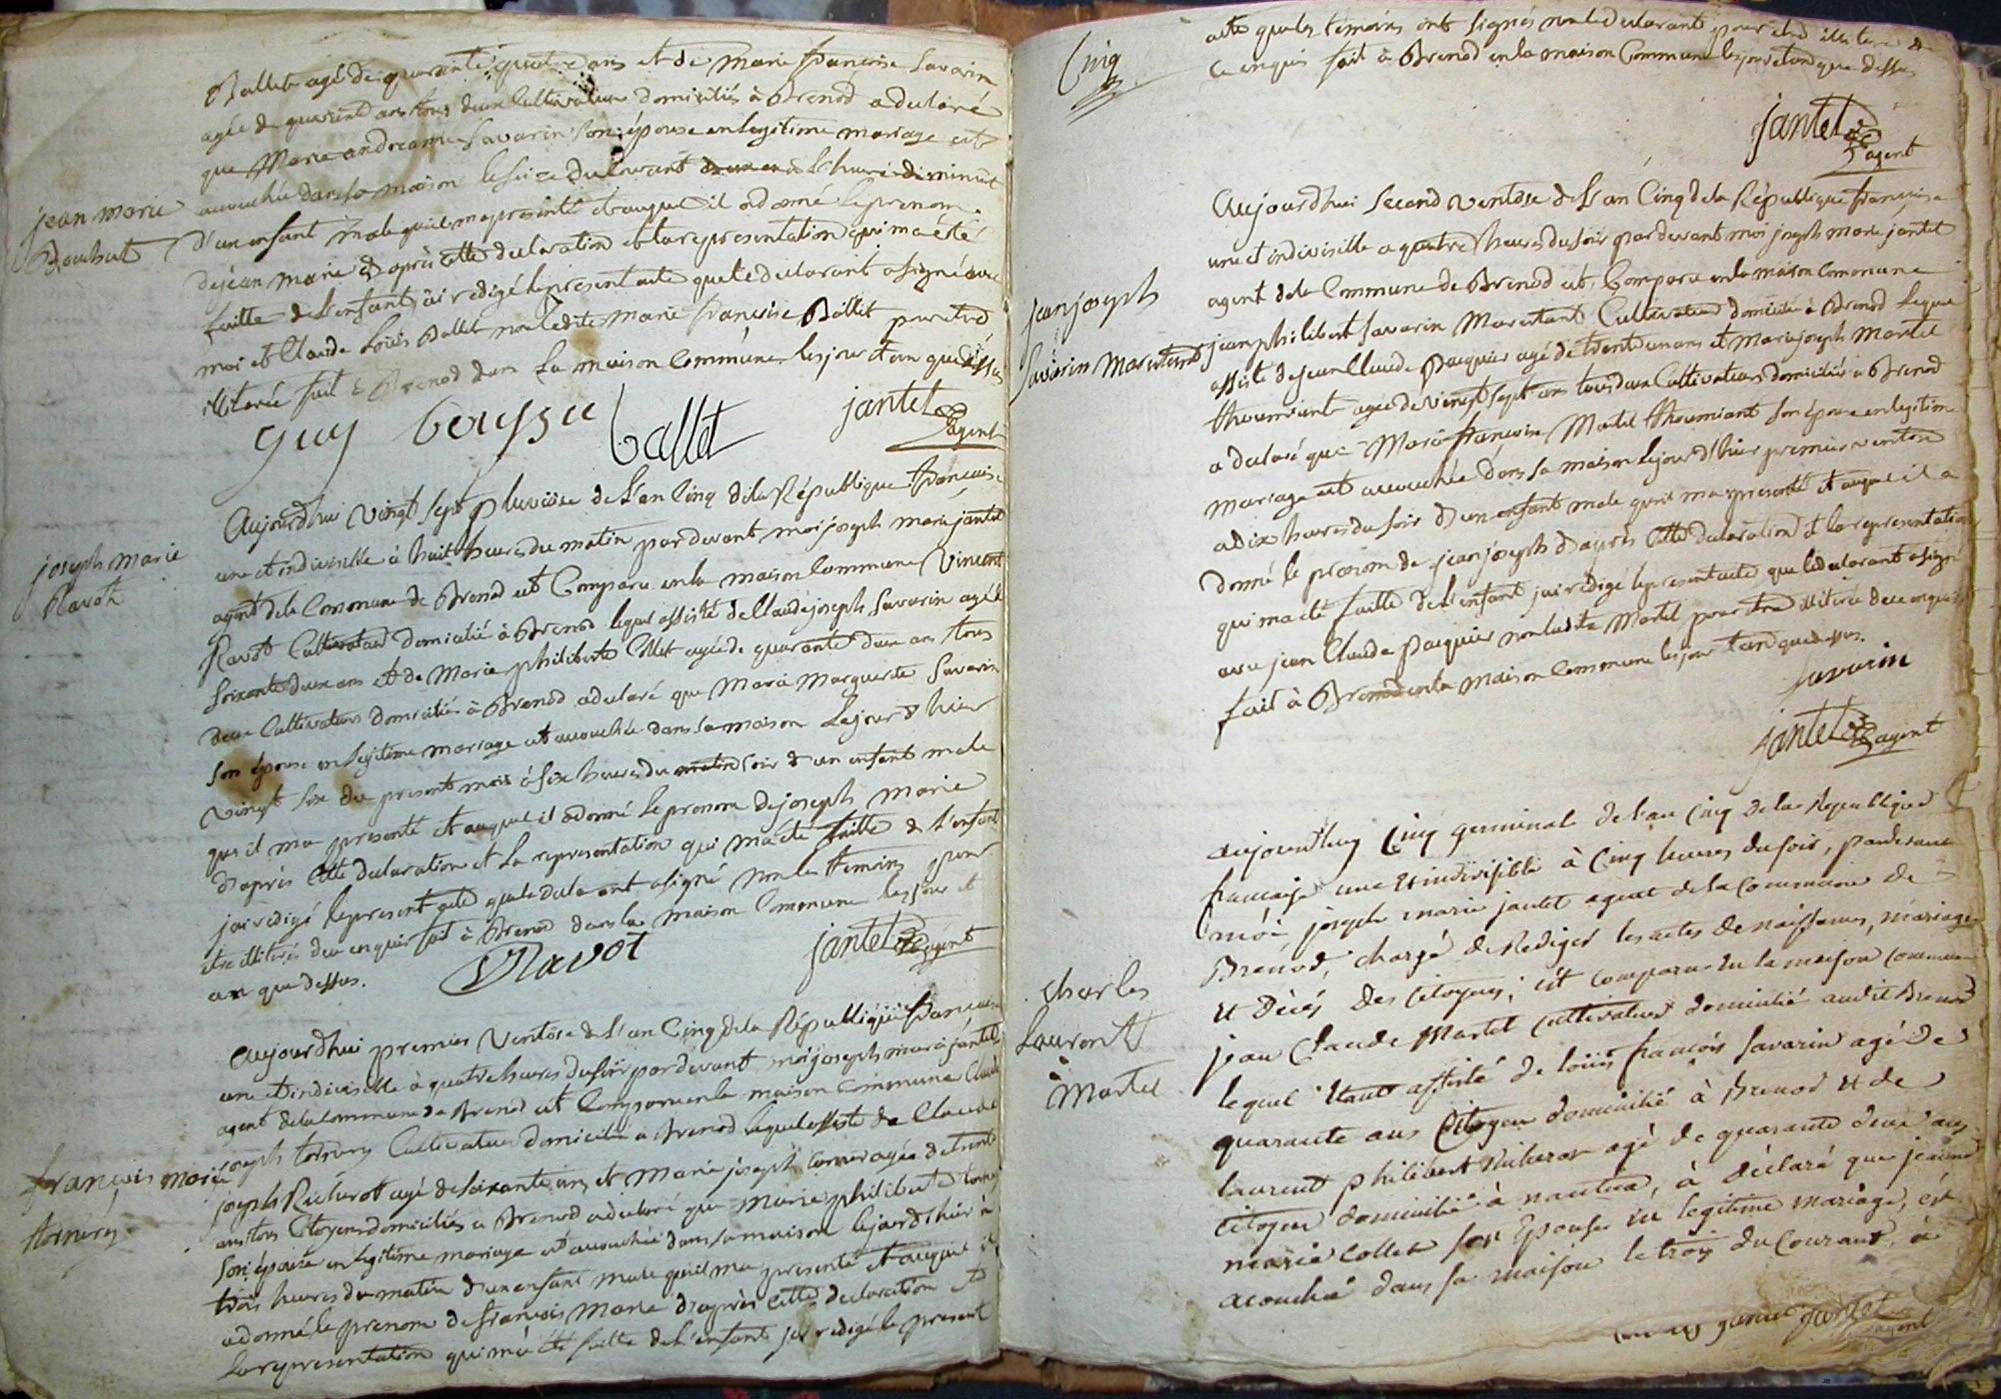 Ballet agé de quarante quatre ans et de Marie françoise Savarin
agée de quarente ans tous deux Cultivateurs domiciliés à Brenod a declaré
que Marie andreanne Savarin son épouse en legitime mariage est
accouchée dans sa maison le seize du courant à l'heure de minuit
jean marie
d'un enfant male qu'il m'a presenté et auquel il a donné le prenom
de jean marie d'après cette declaration et la representation qui m'a été
faitte de l'enfant j'ai redigé le present acte que le declarant a signé avec
moi et Claude Louis Ballet non ladite marie françoise Ballet pour etre
illiterée fait à Brenod dans la maison Commune les jour et an que dessus
guy ballet jantet
agent
Aujourdhui vingt sept pluviose de l'an Cinq de la République françoise
une et indivisible à huit heures du matin pardevant moi joseph marie jantet
joseph marie
Ravot
agent de la Commune de Brenod est Comparu en la maison Commune Vincent
Ravot Cultivateur domicilié à Brenod lequel assisté de Claude joseph Savarin agé de
soixante deux ans et de Marie philiberte Collet agée de quarante deux ans tous
deux Cultivateurs domiciliés à Brenod a declaré que Marie Marguerite Savarin
son épouse en legitime mariage est accouchée dans sa maison le jour d'hier
vingt six du present mois à six heures du soir d'un enfant male
que il m'a presenté et auquel il a donné le prenom de joseph marie
d'après cette declaration et la representation qui m'a été faitte de l'enfant
j'ai redigé le present acte que le declarant a signé non les temoins pour
etre illiterés de ce enquis fait à Brenod dans la maison Commune les jour et
an que dessus.
Ravot jantet
agent
Aujourdhui premier Ventose de l'an Cinq de la République françoise
une et indivisible à quatre heures du soir pardevant moi joseph marie jantet
agent de la Commune de Brenod est Comparu en la maison Commune Claude
françois marie
tornery
joseph tornery Cultivateur domicilié à Brenod lequel assisté de Claude
joseph Richerot agé de soixante ans et Marie joseph agée de trente
ans tous Citoyens domiciliés à Brenod a declaré que Marie philiberte
son épouse en legitime mariage est accouchée dans sa maison le jour d'hier à
trois heures du matin d'un enfant male qu'il m'a presenté et auquel il
a donné le prenom de françois Marie d'après cette declaration et
la representation qui m'a été faitte de l'enfant j'ai redigé le present
Cinq
acte que les temoins ont signés non le declarant pour etre illiteré de
ce enquis fait à Brenod en la maison Commune les jour et an que dessus
jantet
agent
Aujourdhui second ventose de l'an Cinq de la République françoise
une et indivisible a quatre heures du soir pardevant moi joseph marie jantet
agent de la Commune de Brenod est Comparu en la maison Commune
jean joseph
Savarin Marentant
jean philibert Savarin Marentant Cultivateur domicilié à Brenod lequel
assisté de jean Claude Pacquier agé de trente un ans et Marie joseph Martel
thoumiant agée de vingt sept ans tous deux Cultivateurs domiciliés à Brenod
a declaré que Marie françoise Martel thoumiant son épouse en legitime
mariage est accouchée dans sa maison le jour d'hier premier ventose
a dix heures du soir d'un enfant male qu'il m'a presenté et auquel il a
donné le prenom de jean joseph d'après cette declaration et la representation
qui m'a été faitte de l'enfant j'ai redigé le present acte que le declarant a signé
avec jean Claude Pacquier non ladite Martel pour etre illiterée de ce enquis
fait à Brenod en la maison Commune les jour et an que dessus.
Savarin
jantet
agent
aujourd'huy Cinq germinal de l'an Cinq de la Republique
francaise une et indivisible à Cinq heures du soir, pardevant
moi joseph marie jantet agent de la Commune de
Brenod, chargé de Rediger les actes de naissances, mariages
et décés des Citoyens, est comparu en la maison commune
Charles
Laurent
Martel
jean Claude Martel cultivateur domicilié audit Brenod
lequel étant assisté de loüis francois Savarin agé de
quarante ans Citoyen domicilié à Brenod et de
laurent philibert agé de quarante deux ans
citoyen domicilié à nantua, à déclaré que jeanne
marie Collet son Epouse en legitime mariage, est
acouchée dans sa maison le trois du Courant, à
jantet
agent